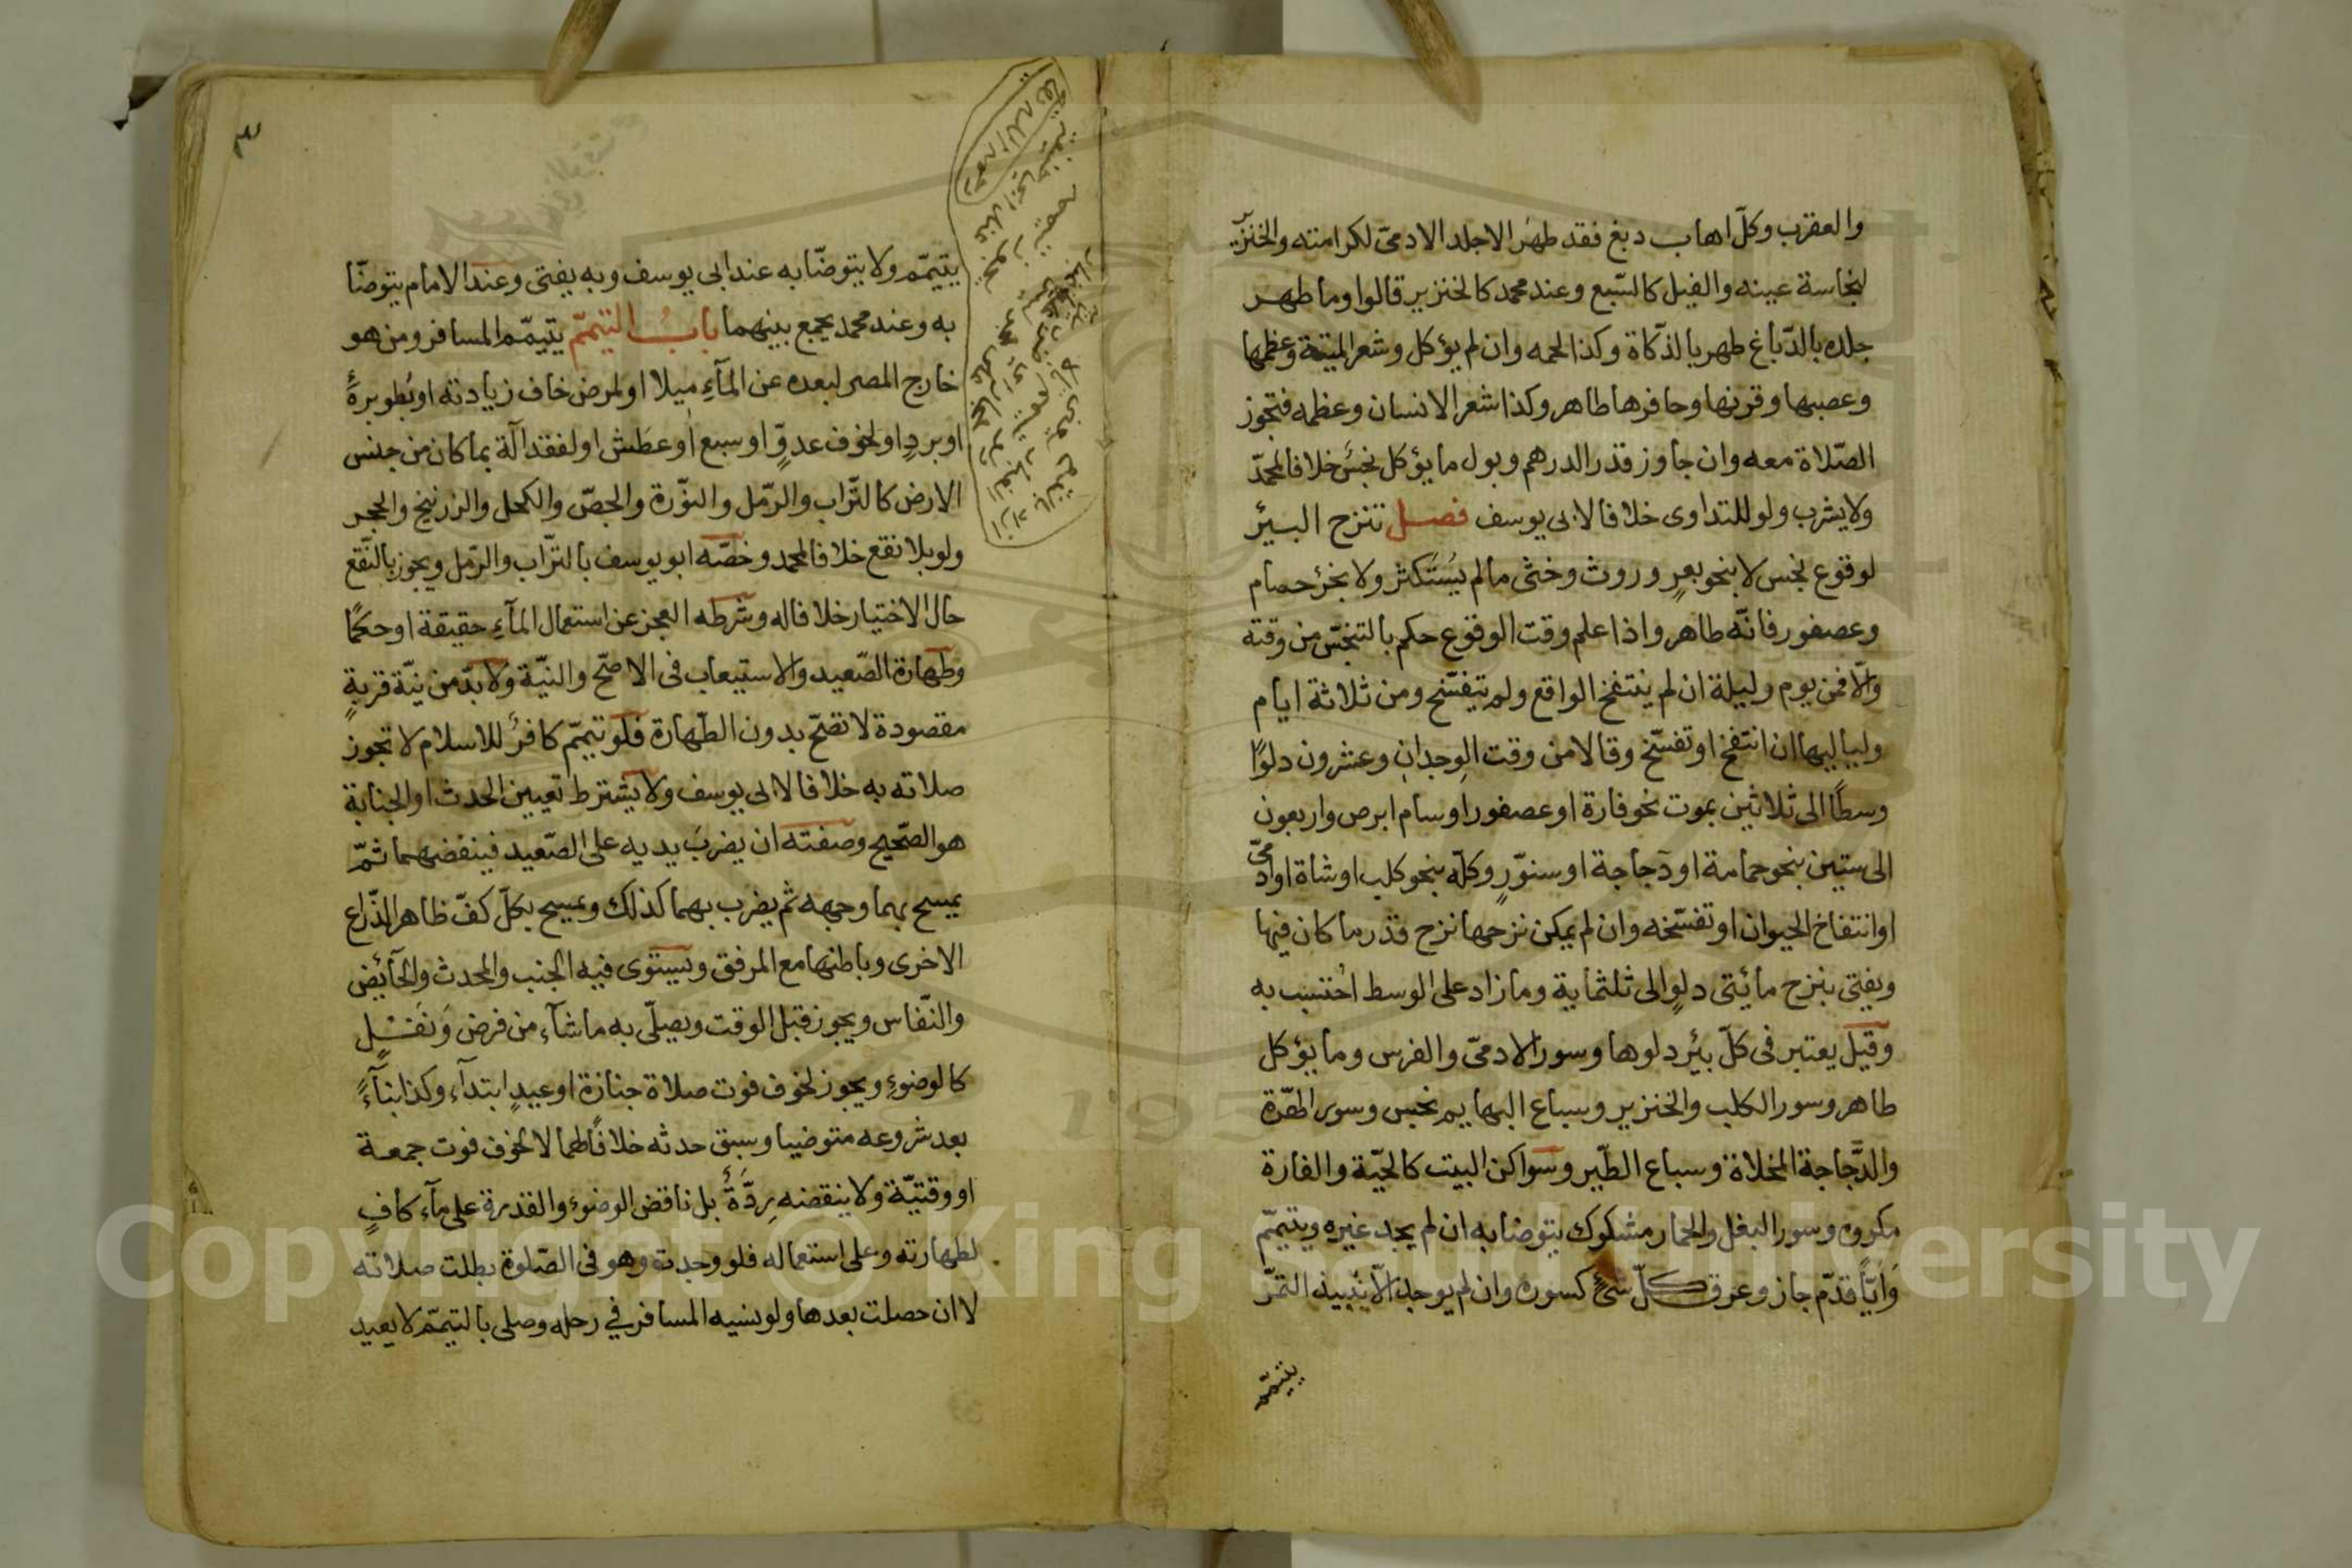 والعقرب وكلّ اهاب دبغ فقد طهر الا جلد الادمىّ لكرامته والخنزير
لنجاسة عينه والفيل كالسّبع وعند محمد كالخنزير قالوا وما طهر
جلده بالدّباغ طهر بالذّكاة وكذا لحمه وان لم يؤكل وشعر الميتة وعظمها
وعصبها وقرنها وحافرها طاهر وكذا شعر الانسان وعظمه فتجوز
الصّلاة معه وان جاوز قدر الدرهم وبول ما يؤكل نجس خلافا لمحمّد
ولا يشرب ولو للتداوى خلافا لابى يوسف فصل تنزح البئر
لوقوع نجس لا بنحو بعرٍ وروث وخثى ما لم يُستكثر ولا بخرء حمام
وعصفور فانّه طاهر واذا علم وقت الوقوع حكم بالتنجّس من وقته
والّا فمن يوم وليلة ان لم ينتفخ الواقع ولم يتفسّخ ومن ثلاثة ايام
ولياليها ان انتفخ او تفسّخ وقالا من وقت الوجدان وعشرون دلوًا
وسطًا الى ثلاثين بموت نحو فارة او عصفور او سام ابرص واربعون
الى ستين بنحو حمامة او دجاجة او سنّورٍ وكلّه بنحو كلب او شاة او ادمىّ
او انتفاخ الحيوان او تفسّخه وان لم يمكن نزحها نزح قدر ما كان فيها
ويفتى بنزح مائتى دلوٍ الى ثلثماية وما زاد على الوسط احُتسب به
وقيل يعتبر فى كلّ بئر دلوها وسور الادمىّ والفرس وما يؤكل
طاهر وسور الكلب والخنزير وسباع البهايم نجس وسور الهرّة
والدَّجاجة المخلاة وسباع الطّير وسواكن البيت كالحيّة والفارة
مكروه وسور البغل والحمار مشكوك يتوضا به ان لم يجد غيره ويتيمّم
وَايّاً قدّم جاز وعرق كلّ شئ كسوره وان لم يوجد الّا نبيذ التمّر
يتيمّم
٣
يتيمّم ولا يتوضّا به عند ابى يوسف وبه يفتى وعند الامام يتوضّا
به وعند محمد يجمع بينهما بابُ التيمّم يتيمّم المسافر ومن هو
خارج المصر لبعده عن المآءِ ميلا او لمرض خاف زيادته او بُطو برءهُ
او بردٍ او لخوف عدوٍّ او سبع او عطش او لفقد آلة بما كان من جنس
الارض كالتّراب والرّمل والنوّرة والجصّ والكحل والزرنيخ والحجر
ولو بلا نقع خلافا لمحمد وخصّه ابو يوسف بالترّاب والرّمل ويجوز بالنّقع
حال الاختيار خلافا له وشرطه العجز عن استعمال المآءِ حقيقة او حكمًا
وطهارة الصّعيد والاستيعاب فى الاصّح والنيّة ولا بدّ من نيّة قربةٍ
مقصودة لا تصّح بدون الطّهارة فلو تيمّم كافرٌ للاسلام لا تجوز
صلاته به خلافا لابى يوسف ولا يشترط تعيين الحدث او الجنابة
هو الصّحيح وصفته ان يضربَ يديه على الصّعيد فينفضهما ثمّ
يمسح بهما وجهه ثم يضرب بهما كذلك ويمسح بكلّ كفّ ظاهر الذّراع
الاخرى وباطنها مع المرفق ويستوى فيه الجنب والمحدث والحآئض
والنّفاس ويجوز قبل الوقت ويصلّى به ما شآء من فرض وَنفَلٍ
كالوضوءِ ويجوز لخوف فوت صلاة جنازة او عيدٍ ابتدآء وكذا بنآءً
بعد شروعه متوضيا وسبق حدثه خلافًا لهما لا لخوف فوت جمعة
او وقتيّة ولا ينقضه رِدّةٌ بل ناقض الوضوء والقدرة على مآء كافٍ
لطهارته وعلى استعماله فلو وجدت وهو فى الصّلوة بطلت صلاته
لا ان حصلت بعدها ولو نسيه المسافر في رحله وصلى بالتيمّم لا يعيد